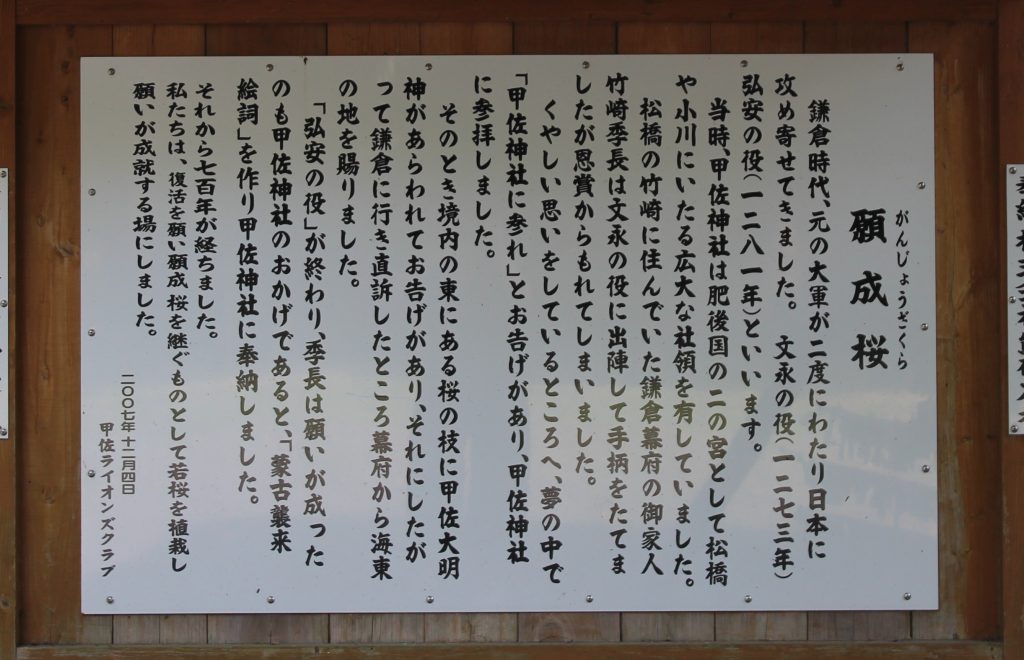 がんじょうざくら
願成桜
鎌倉時代、元の大軍が二度にわたり日本に
攻め寄せてきました。 文永の役(一二七三年)
弘安の役(一二八一年)といいます。
当時、甲佐神社は肥後国の二の宮として松橋
や小川にいたる広大な社領を有していました。
松橋の竹崎に住んでいた鎌倉幕府の御家人
竹崎季長は文永の役に出陣して手柄をたてま
したが恩賞からもれてしまいました。
くやしい思いをしているところへ、夢の中で
「甲佐神社に参れ」とお告げがあり、甲佐神社
に参拝しました。
そのとき境内の東にある桜の枝に甲佐大明
神があらわれてお告げがあり、それにしたが
って鎌倉に行き直訴したところ幕府から海東
の地を賜りました。
「弘安の役」が終わり、季長は願いが成った
のも甲佐神社のおかげであると、「蒙古襲来
絵詞」を作り甲佐神社に奉納しました。
それから七百年が経ちました。
私たちは、復活を願い願成桜を継ぐものとして若桜を植栽し
願いが成就する場にしました。
二〇〇七年十二月四日
甲佐ライオンズクラブ